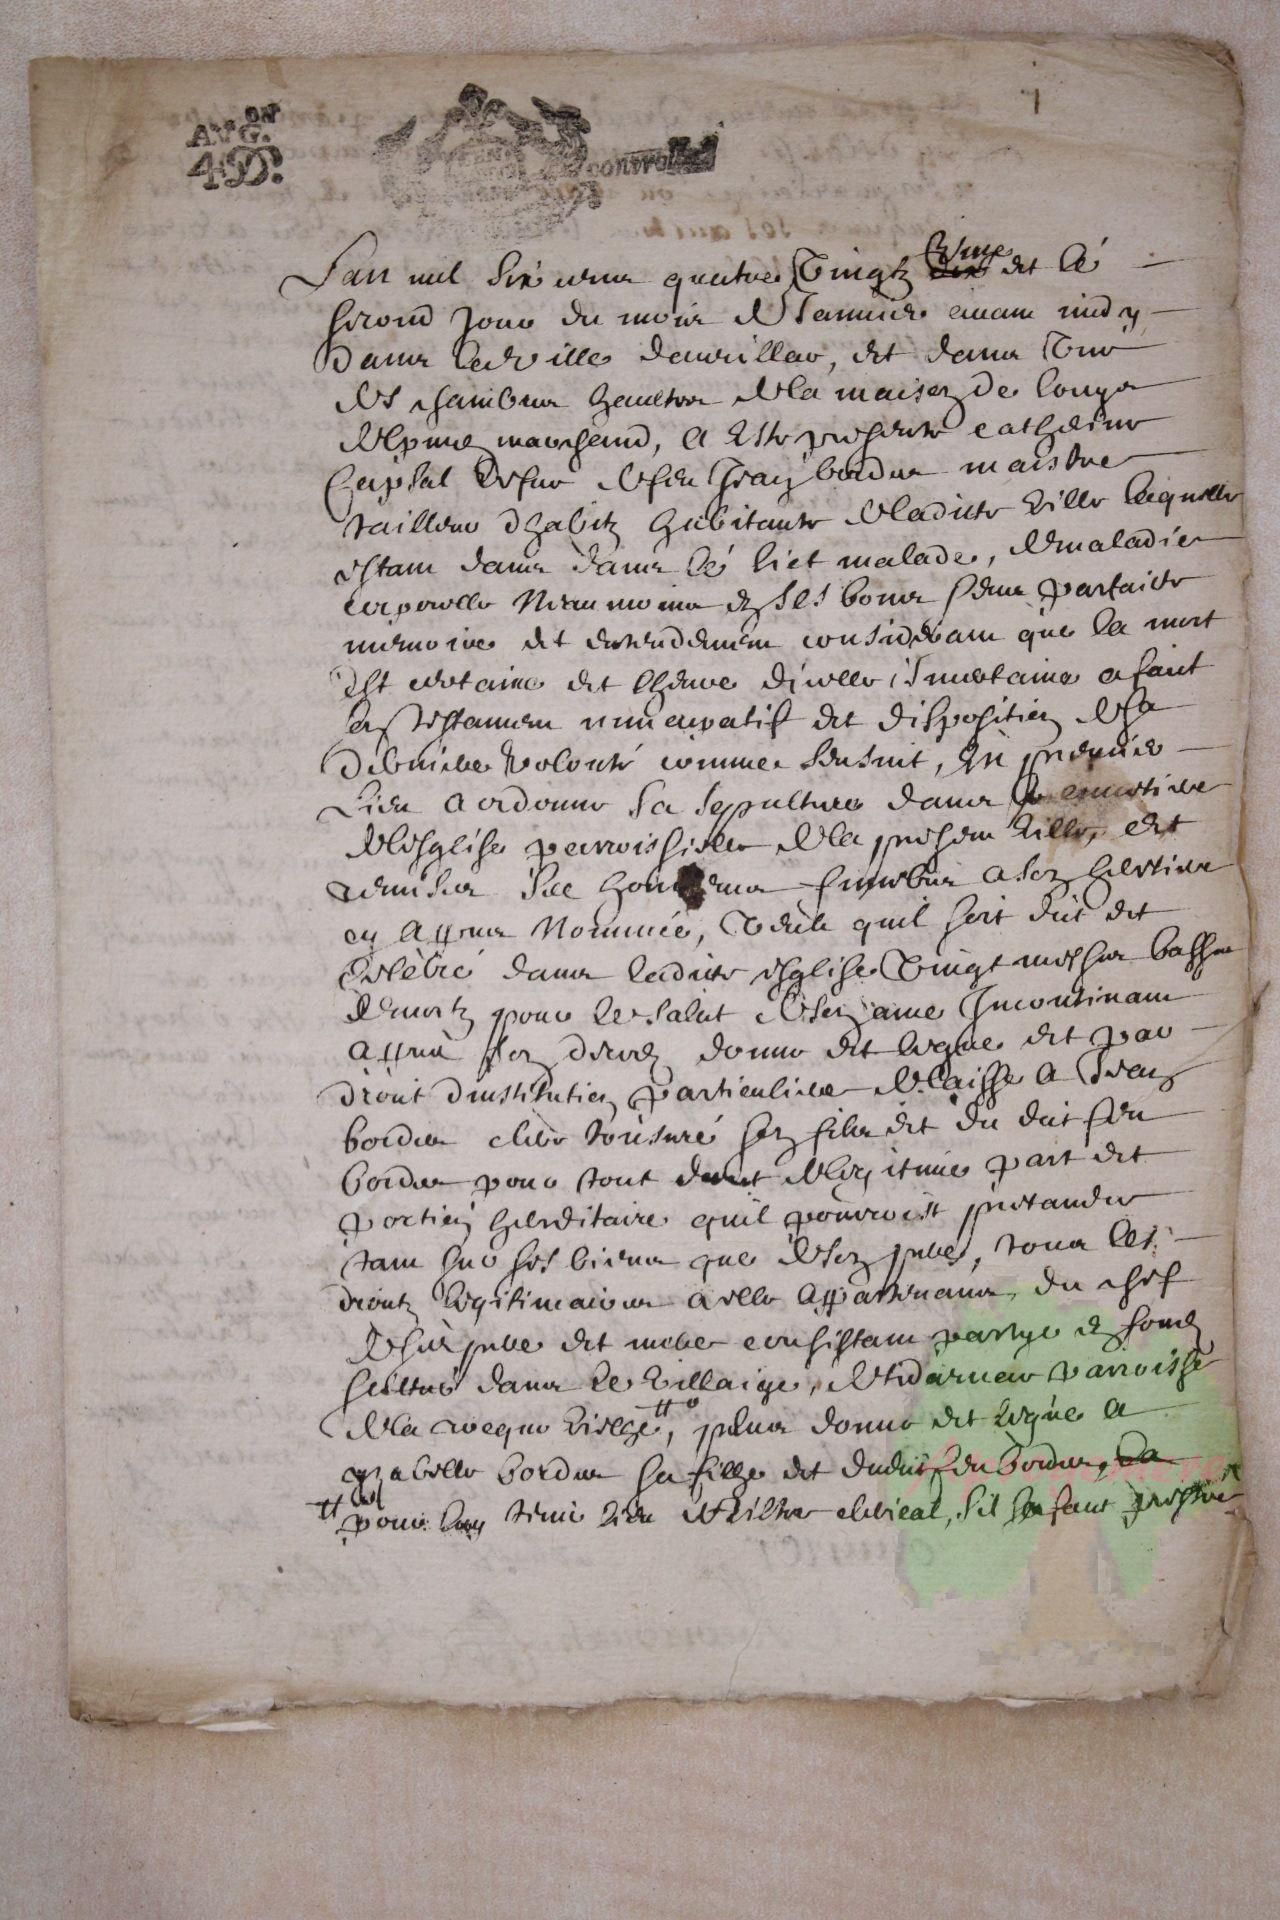 ON
AUG.
4 D.
controlle
Lan mil six cens quatre vingtz et le
second jour du mois de Januier auant midy
dans la ville daurillac, et dans une
des chambres haultes de la maison de
marchand, a este presente catherine
vefue de feu Jean bordes maistre
tailleur dhabitz habitante de ladicte ville laquelle
estant dans dans le lict malade, de maladie
corporelle neanmoins en ses bons sens parfaicte
memoire et entendement considerant que la mort
est certaine et lheure dicelle incertaine a faict
son testament nuncupatif et disposition de sa
derniere volonté comme sensuit, En premier
lieu a ordonné sa sepulture dans le
de lesglise parroissielle de la presente ville, et
remis ses honneurs funebres a son heritier
cy appres nommé, veult quil soit dict et
celebré dans ladicte esglise vingt messes basses
de mortz pour le salut de son ame Incontinant
appres son deces donne et legue et par
droict dinstitution particuliere delaisse a Jean
bordes clerc tonsuré son filz et du dict feu
bordes pour tout droict de legitime part et
portion hereditaire quil pourroist pretandre
tant sur ses biens que de son pere, tous les
droictz legitimaires a elle appartenans du chef
de ses pere et mere consistant partye en fondz
scitués dans le village, parroisse
de la , plus donne et legue a
Izabelle bordes sa fille et dudict feu bordes,
pour luy tenir lieu de tiltre clerical, sil se faict prestre